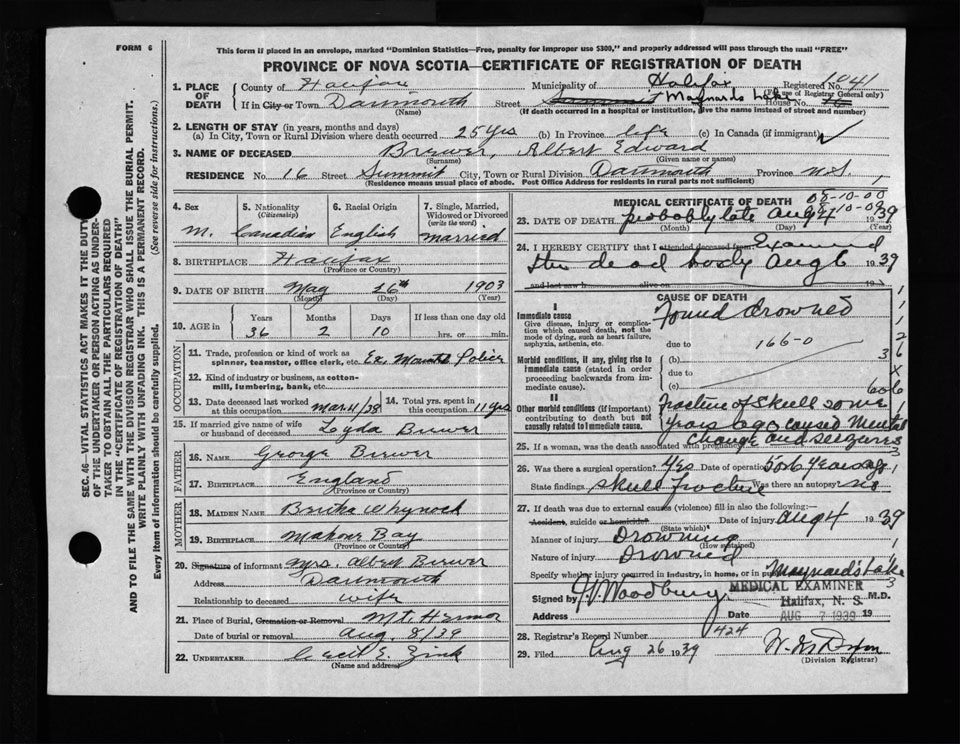 FORM 6
This form if placed in an envelope, marked "Dominion Statistics—Free, penalty for improper use $300," and properly addressed will pass through the mail "FREE"
PROVINCE OF NOVA SCOTIA—CERTIFICATE OF REGISTRATION OF DEATH
1. PLACE OF DEATH County of Halifax Municipality of Halifax Registered No. 1041
(For use of Registrar General only)
If in City or Town Dartmouth Street Summit Maynards Lake House No. 16
(Name) (If death occurred in a hospital or institution, give the name instead of street and number)
2. LENGTH OF STAY (in years, months and days)
(a) In City, Town or Rural Division where death occurred 25 yrs (b) In Province life (c) In Canada (if immigrant)
3. NAME OF DECEASED Brewer, Albert Edward
(Surname) (Given name or names)
RESIDENCE No. 16 Street Summit City, Town or Rural Division Dartmouth Province N.S.
(Residence means usual place of abode. Post Office Address for residents in rural parts not sufficient)
4. Sex 5. Nationality (Citizenship) 6. Racial Origin 7. Single, Married, Widowed or Divorced (write the word)
M. Canadian English Married
8. BIRTHPLACE Halifax
(Province or Country)
9. DATE OF BIRTH May 26th 1903
(Month) (Day) (Year)
10. AGE in Years Months Days If less than one day old
36 2 10 hrs. or min.
OCCUPATION
11. Trade, profession or kind of work as spinner, teamster, office clerk, etc. Ex. Mounted Police
12. Kind of industry or business, as cotton-mill, lumbering, bank, etc.
13. Date deceased last worked at this occupation Mar 11/28 14. Total yrs. spent in this occupation 11 yrs
15. If married give name of wife or husband of deceased Leyda Brewer
FATHER
16. NAME George Brewer
17. BIRTHPLACE England
(Province or Country)
MOTHER
18. MAIDEN NAME Bertha Whynock
19. BIRTHPLACE Mahone Bay
(Province or Country)
20. Signature of informant Mrs. Albert Brewer
Address Dartmouth
Relationship to deceased wife
21. Place of Burial, Cremation or Removal Mt. Hermon
Date of burial or removal Aug. 8/39
22. UNDERTAKER Cecil E. Zink
(Name and address)
MEDICAL CERTIFICATE OF DEATH
23. DATE OF DEATH probably late Aug 4 1939
(Month) (Day) (Year)
24. I HEREBY CERTIFY that I attended deceased from Examined
the dead body Aug 6 1939
and last saw h alive on 19
CAUSE OF DEATH
I
Immediate cause
Give disease, injury or complication which caused death, not the mode of dying, such as heart failure, asphyxia, asthenia, etc.
Found drowned
due to 166-0
Morbid conditions, if any, giving rise to immediate cause (stated in order proceeding backwards from immediate cause).
(b)
due to
(c)
II
Other morbid conditions (if important) contributing to death but not causally related to immediate cause.
Fracture of skull some years ago caused mental change and seizures
25. If a woman, was the death associated with pregnancy?
26. Was there a surgical operation? Yes Date of operation 5 or 6 years ago
State findings Skull fracture Was there an autopsy? no
27. If death was due to external causes (violence) fill in also the following:
Accident, suicide or homicide? Date of injury Aug 4 1939
(State which)
Manner of injury Drowning
(How sustained)
Nature of injury Drowned
Specify whether injury occurred in industry, in home, or in public Maynard's Lake
Signed by Woodbury M.D.
MEDICAL EXAMINER
Halifax, N. S.
Address Date AUG 7 1939 19
28. Registrar's Record Number 424
29. Filed Aug 26 1939
(Division Registrar)
SEC. 46—VITAL STATISTICS ACT MAKES IT THE DUTY
OF THE UNDERTAKER OR PERSON ACTING AS UNDER-
TAKER TO OBTAIN ALL THE PARTICULARS REQUIRED
IN THE "CERTIFICATE OF REGISTRATION OF DEATH"
AND TO FILE THE SAME WITH THE DIVISION REGISTRAR WHO SHALL ISSUE THE BURIAL PERMIT.
WRITE PLAINLY WITH UNFADING INK. THIS IS A PERMANENT RECORD.
Every item of information should be carefully supplied. (See reverse side for instructions.)